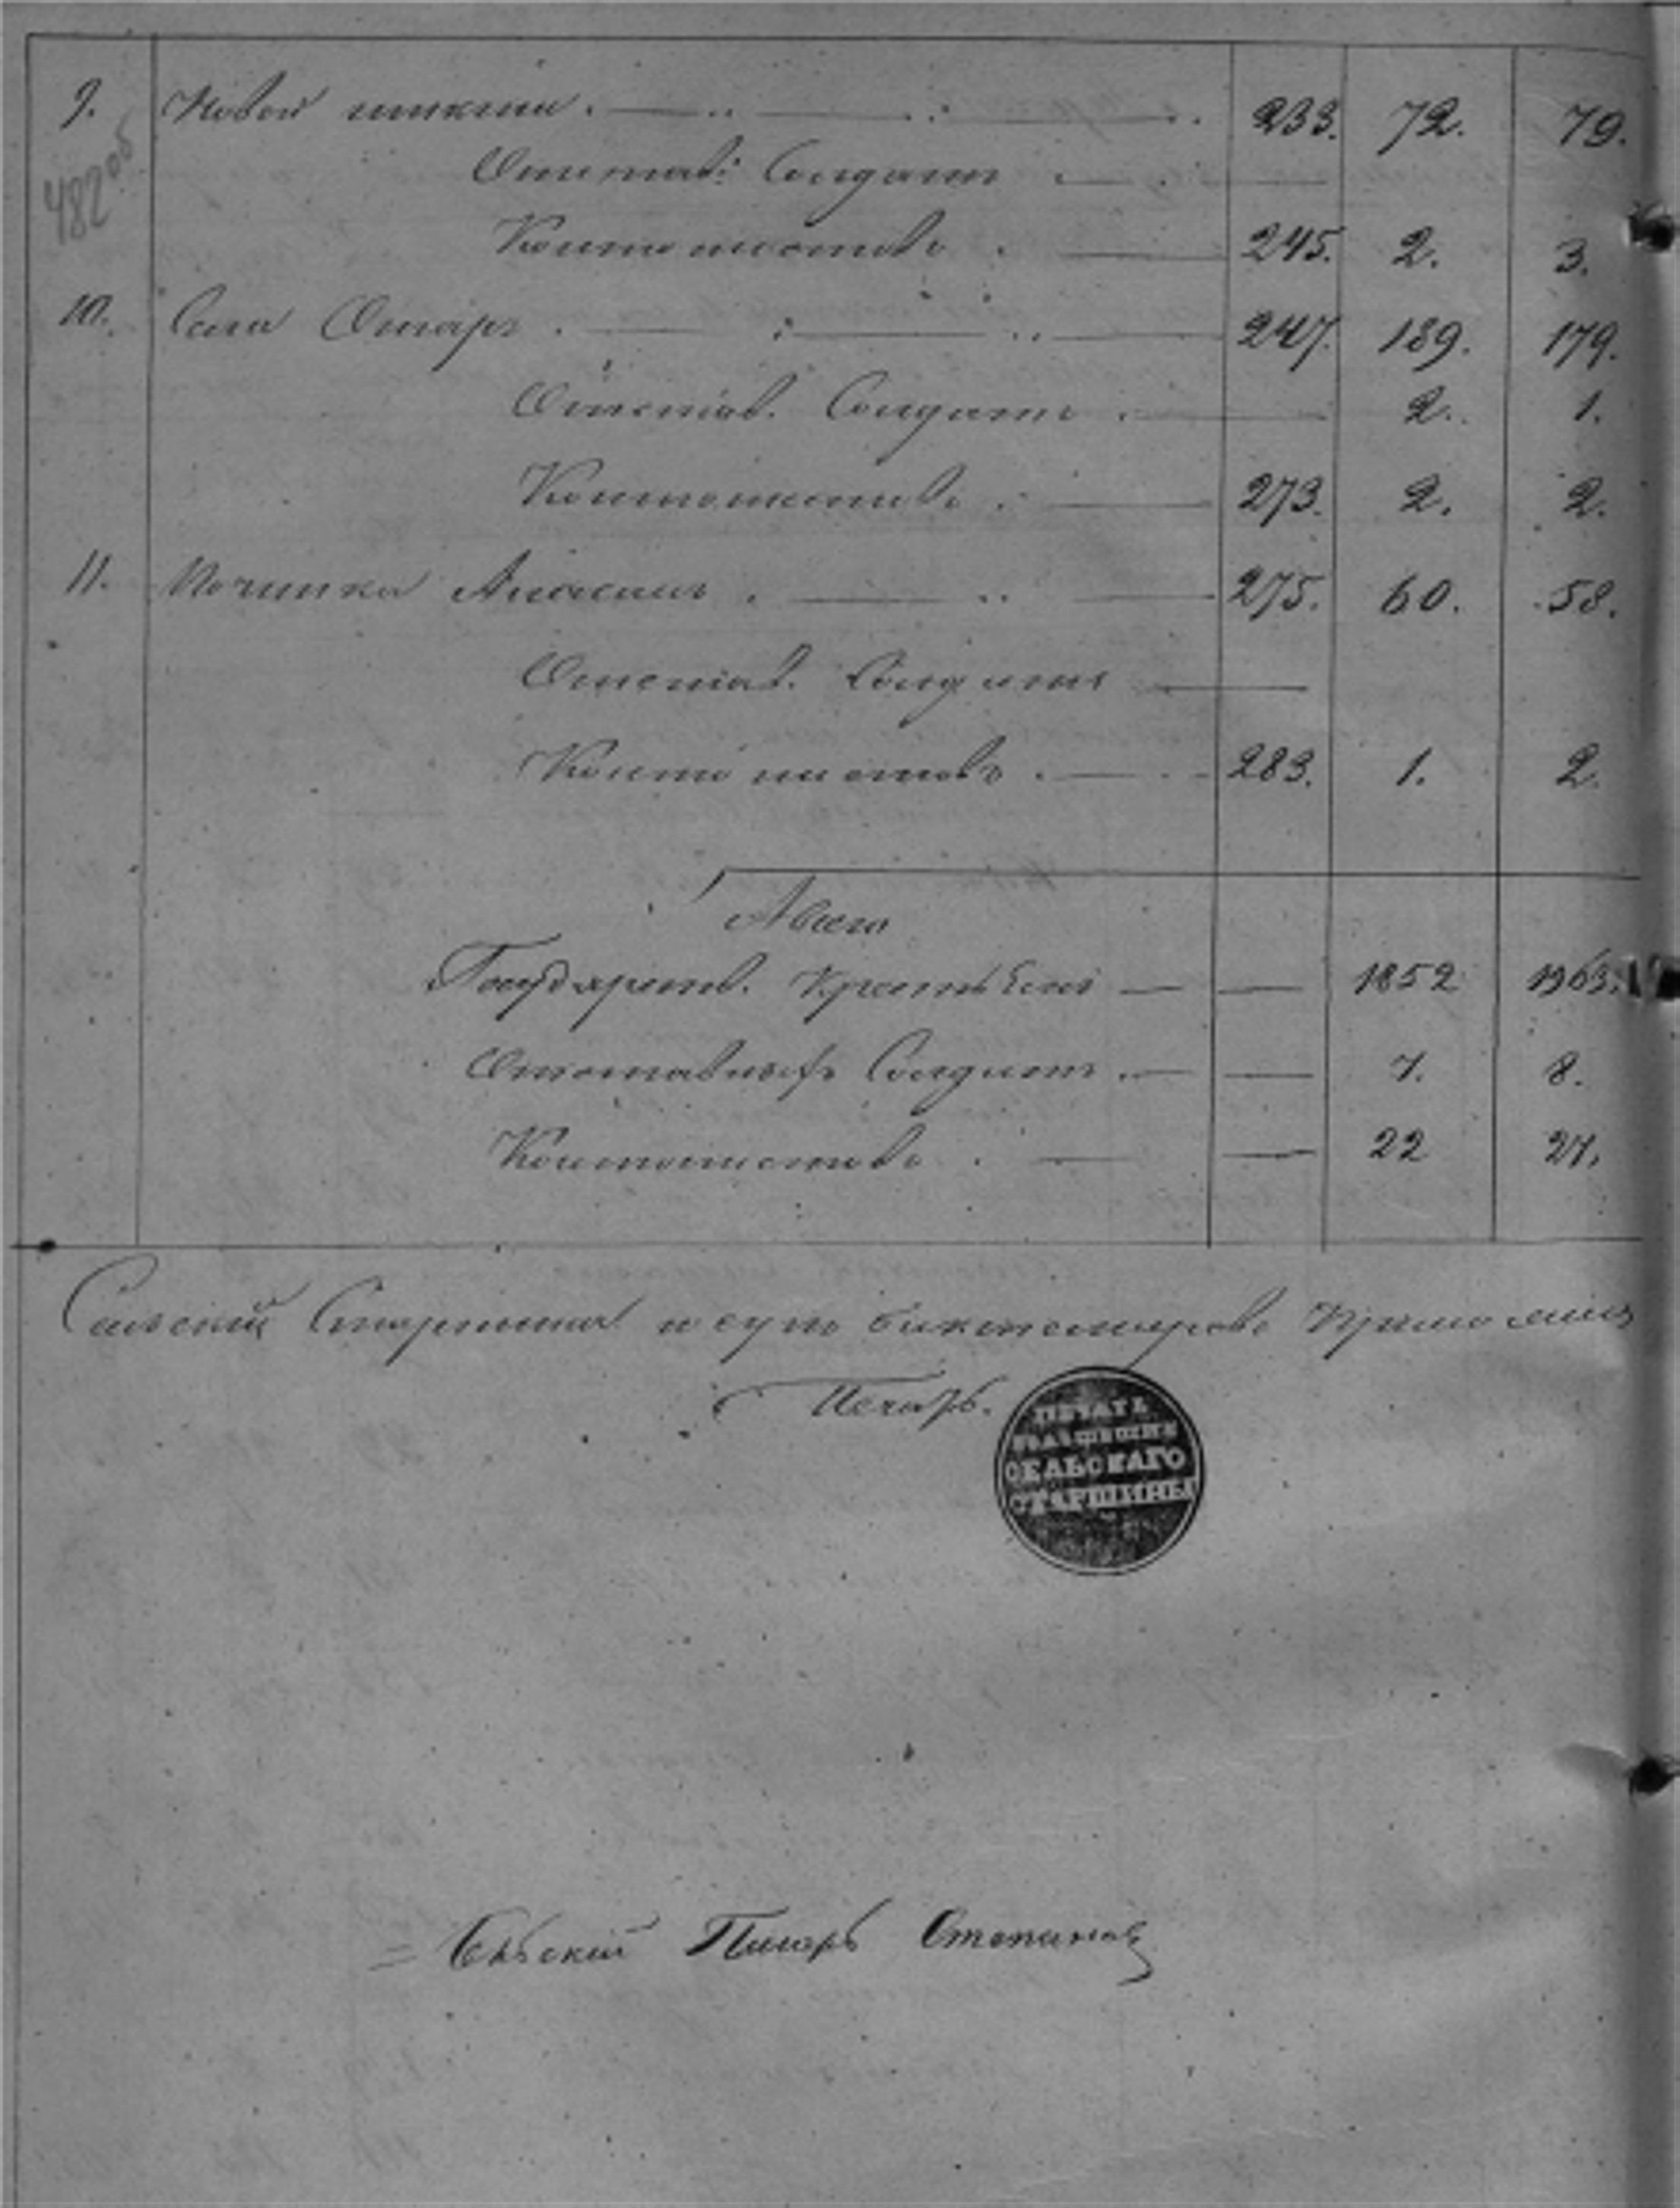 9. Новой 233. 72. 79.
482об
Отстав: Солдатъ
Кантонистовъ 245. 2. 3.
10. Села Отаръ 247. 189. 179.
Отстав. Солдатъ 2. 1.
Кантонистовъ 273. 2. 2.
11. Починка 275. 60. 58.
Отстав. Солдатъ
Кантонистовъ 283. 1. 2.
А всего
Государств. Крестьянъ 1852 1963.
Отставныхъ Солдатъ 7. 8.
Кантонистовъ 22 27.
Сельский Старшина приложилъ
Печать.
ПЕЧАТЬ
СЕЛЬСКАГО
СТАРШИНЫ
Сельский Писарь Степановъ